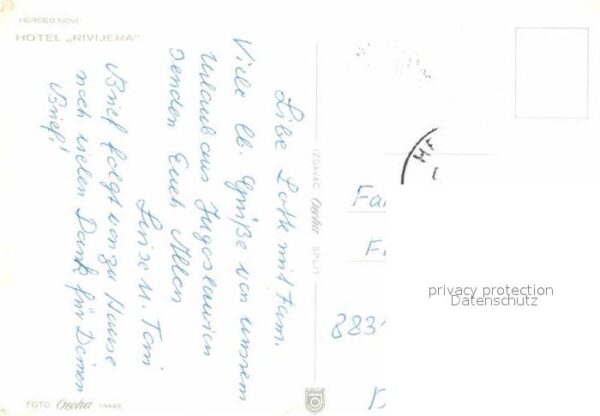 HERCEG NOVI
HOTEL „RIVIJERA"
Libe Lotte mit Fam.
Viele lb. Grüße von unsrem
Urlaub aus Jugoslawien
senden Euch Allen
Luise u. Toni
Brief folgt von zu Hause
noch vielen Dank für Deinen
Brief!
IZDAVAČ SPLIT
Fa
F
883
privacy protection
Datenschutz
FOTO 14449